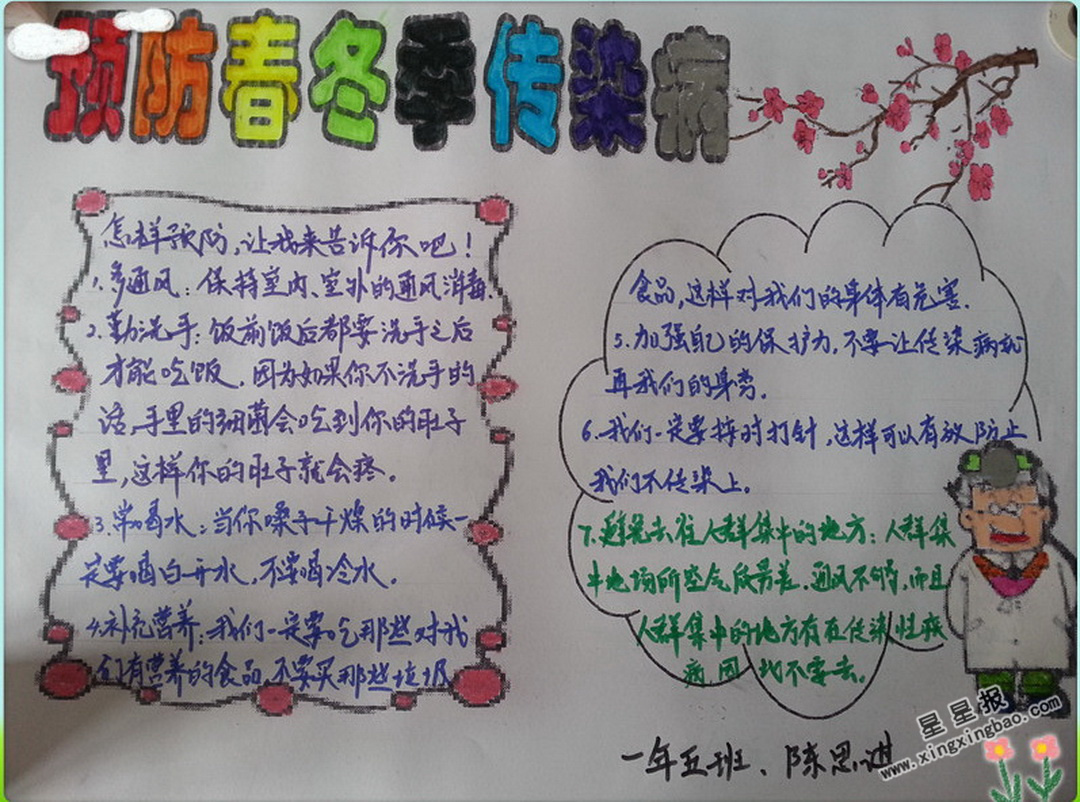 预防春冬季传染病
怎样预防，让我来告诉你吧！
1.多通风：保持室内、室外的通风消毒.
2.勤洗手：饭前饭后都要洗手之后
才能吃饭，因为如果你不洗手的
话，手里的细菌会吃到你的肚子
里，这样你的肚子就会疼。
3.常喝水：当你嗓子干燥的时候一
定要喝白开水，不要喝冷水。
4.补充营养：我们一定要吃那些对我
们有营养的食品，不要买那些垃圾
食品，这样对我们的身体有危害.
5.加强自己的保护力，不要让传染病
再我们的身旁。
6.我们一定要按时打针，这样可以有放防止
我们不传染上。
7.避免去往人群集中的地方：人群集
中地场所空气质量差，通风不够，而且
人群集中的地方有在传染性疾
病，因 不要去。
一年五班、陈思进
星星报
www.xingxingbao.com